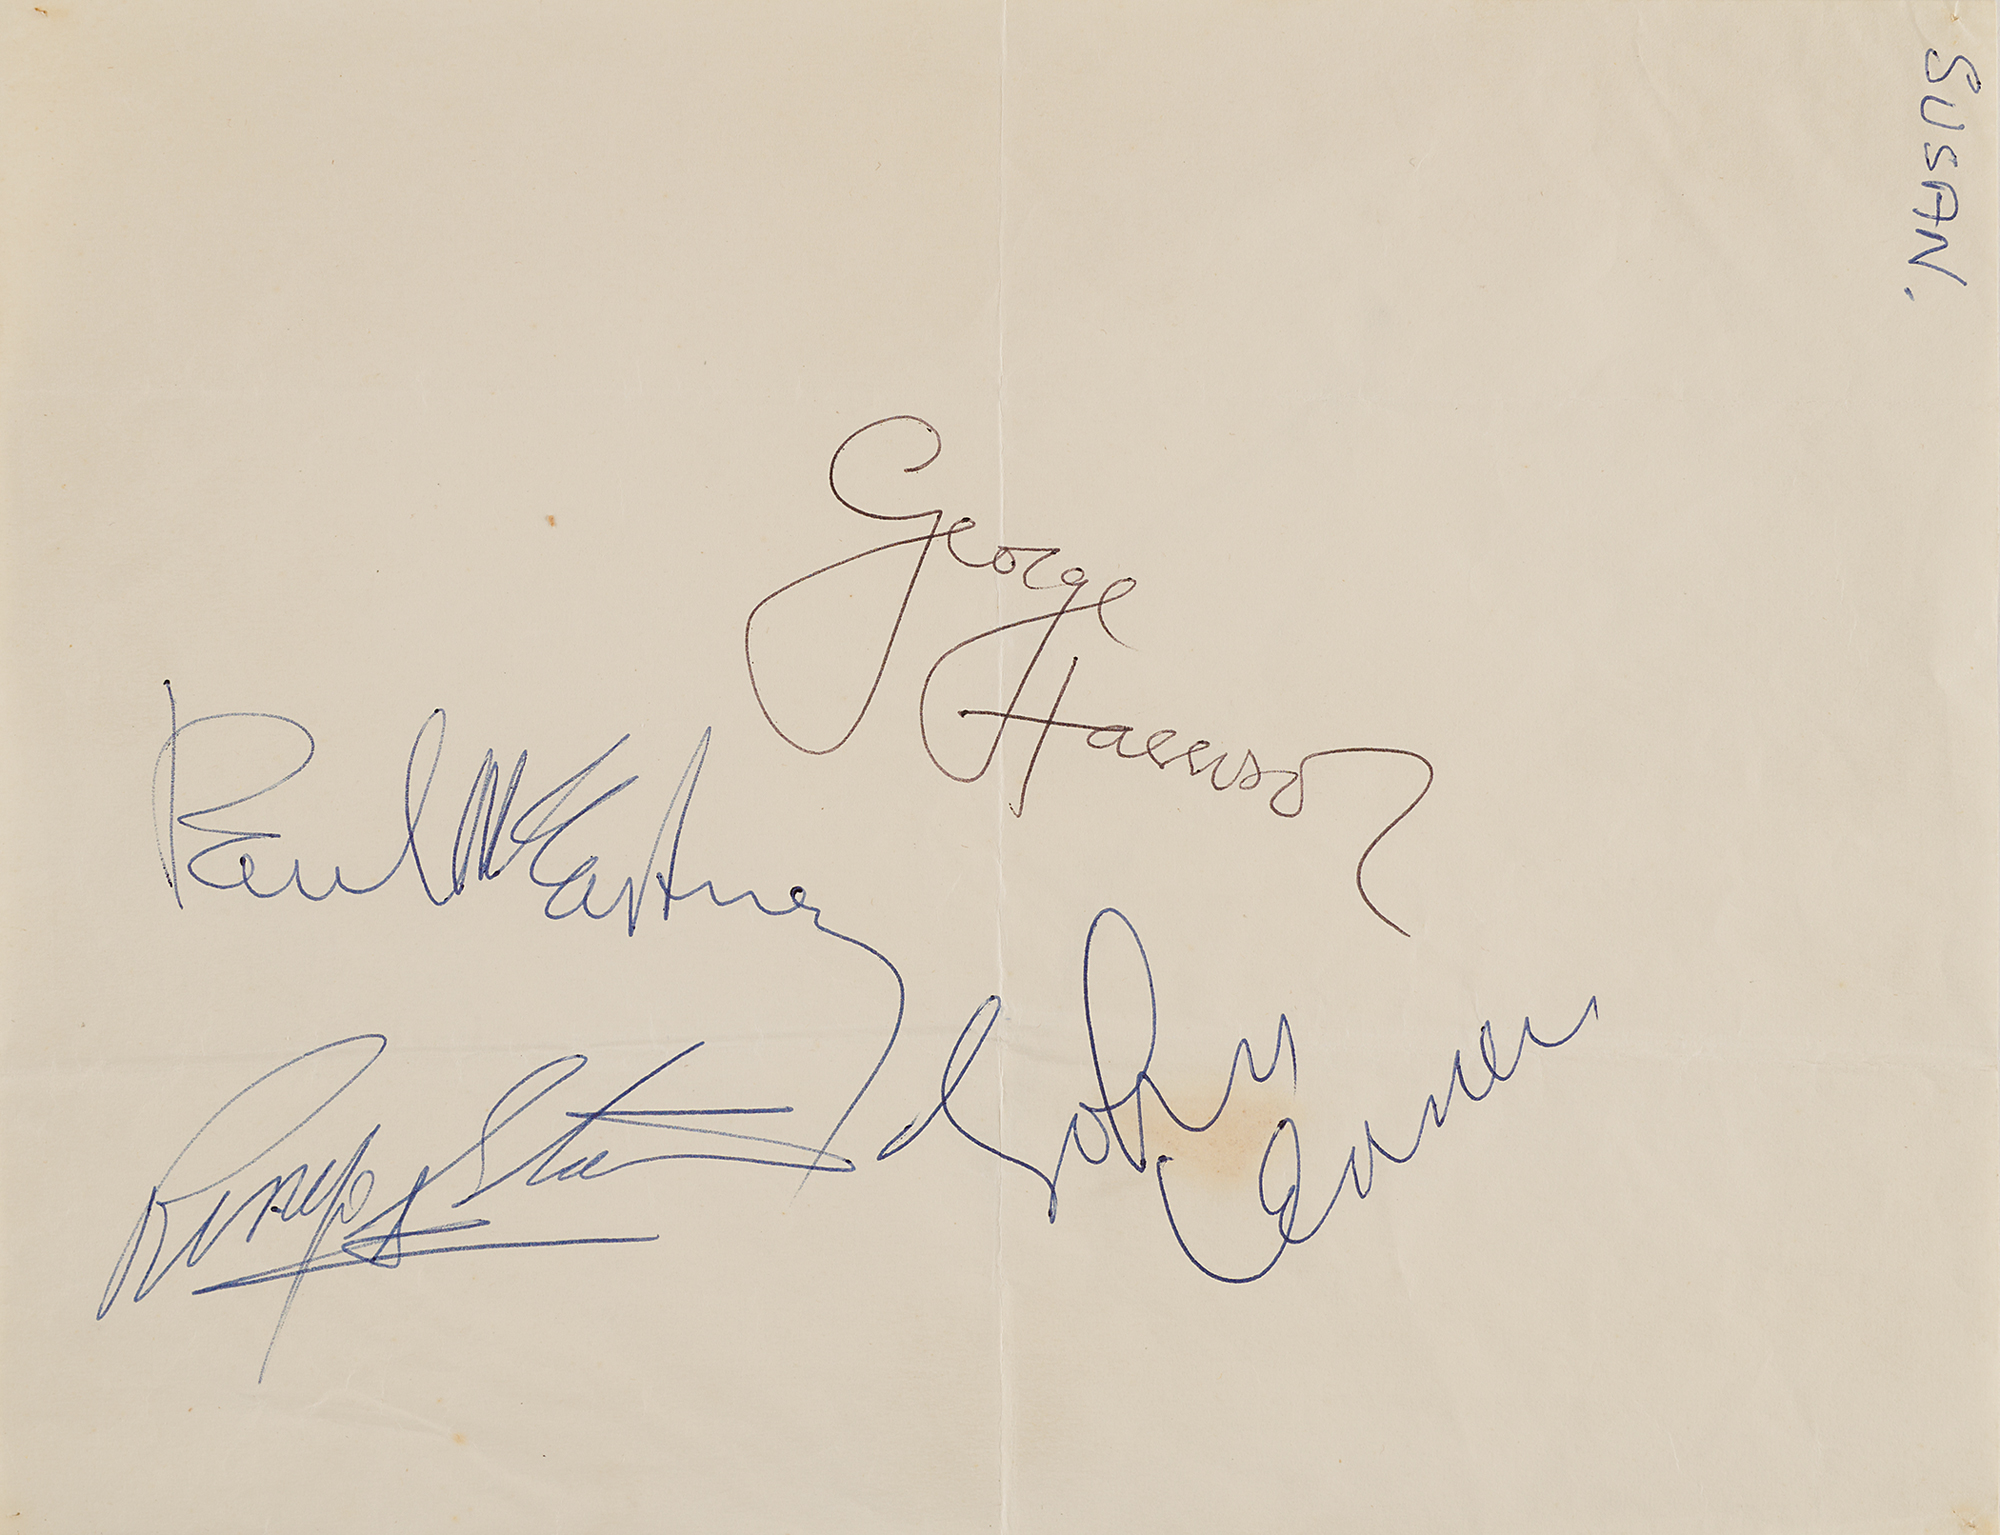 SUSAN.
George
Harrison
Paul McCartney
John
Lennon
Ringo Starr